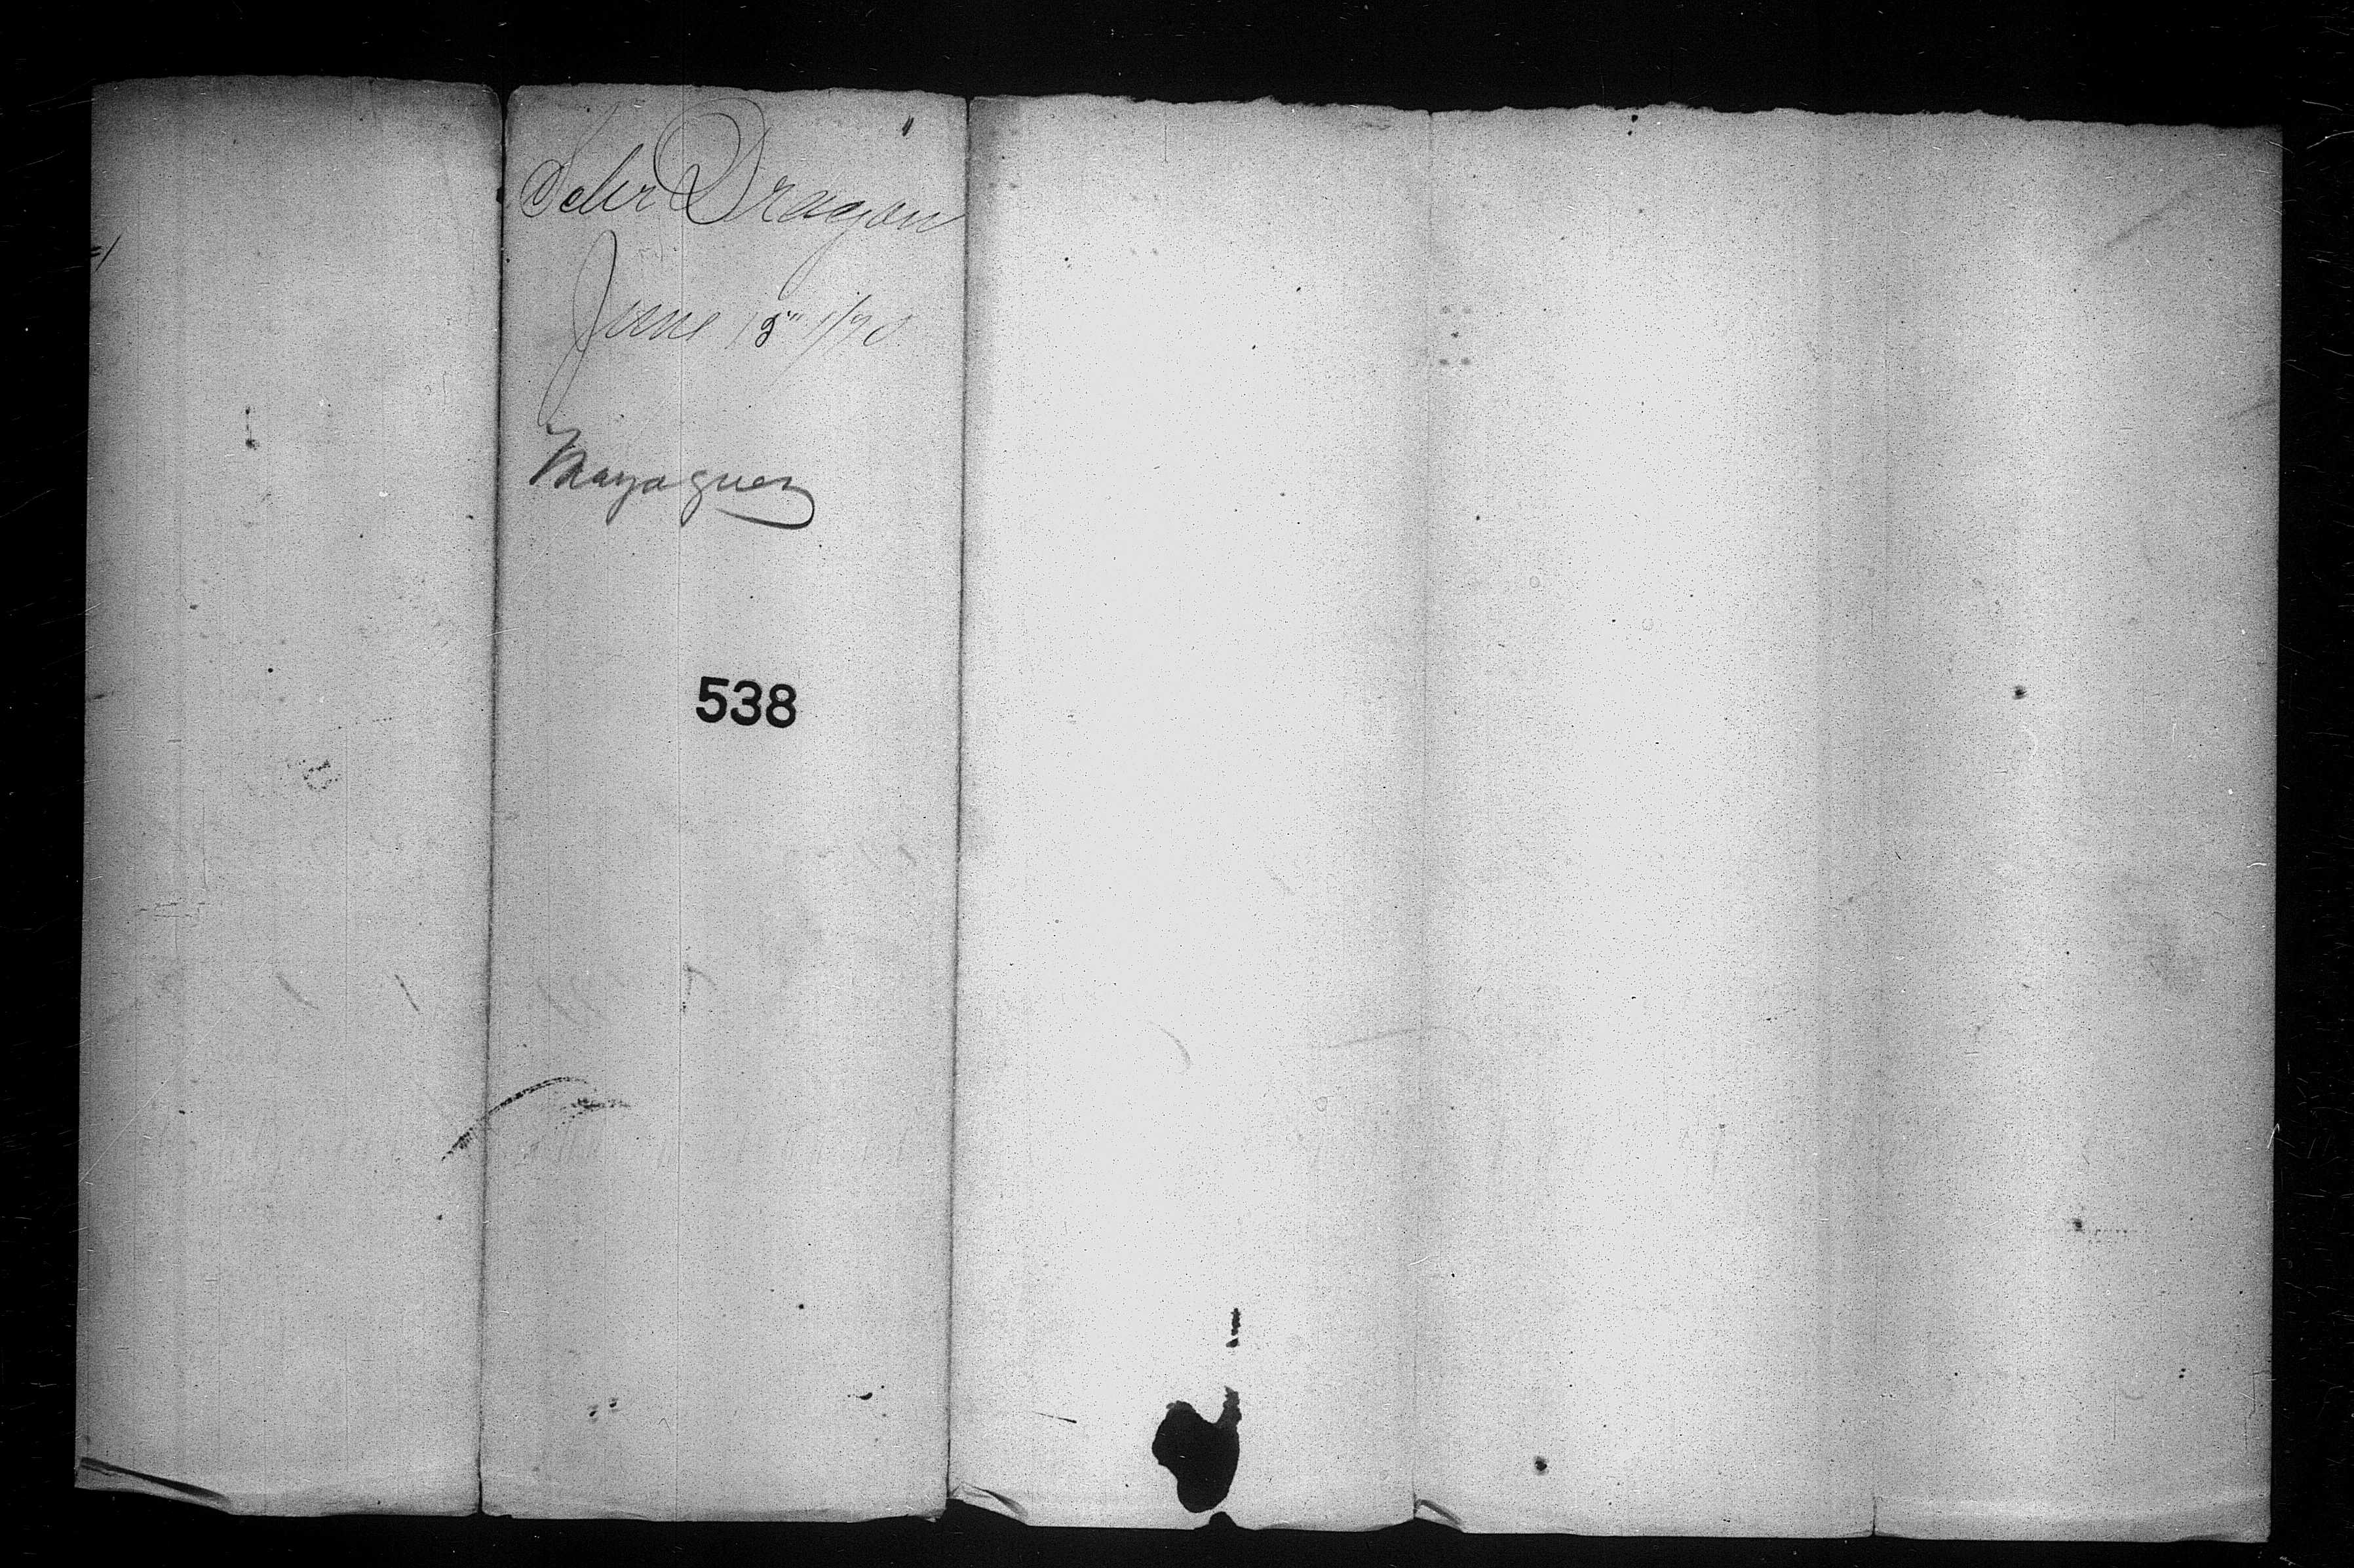 Schr Dragon
June 15"
Mayaguez
538